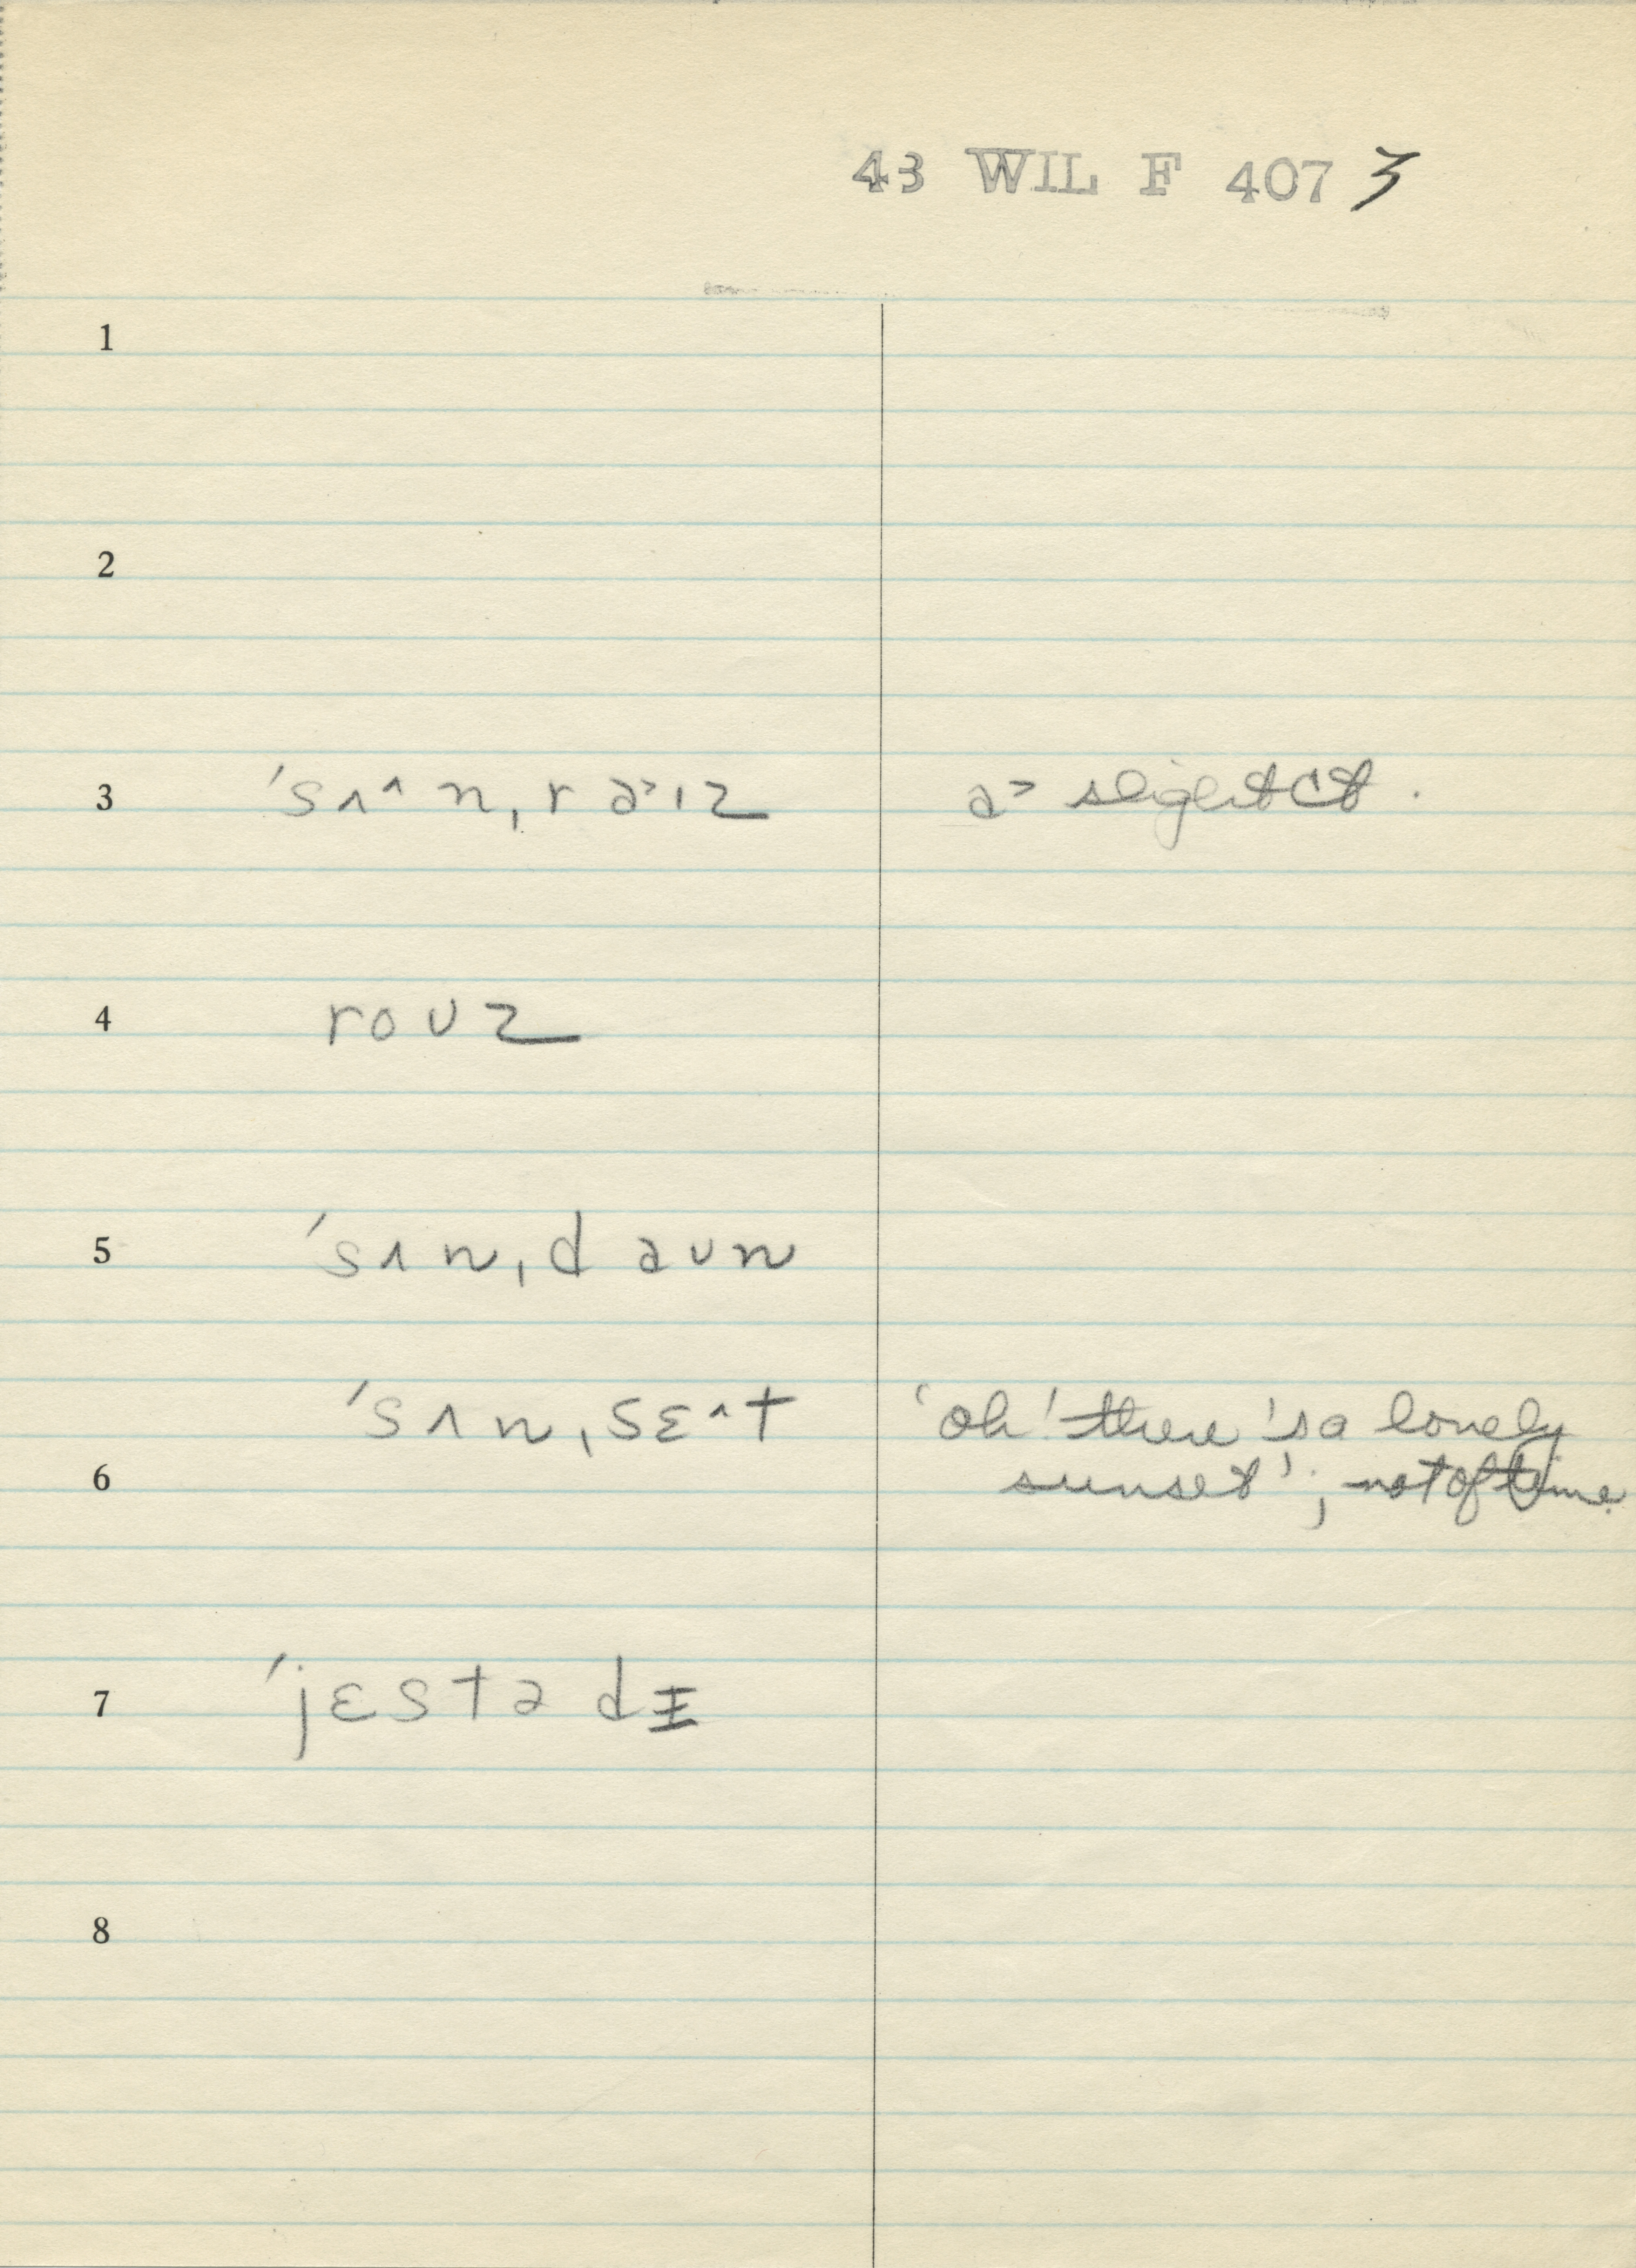 43 WIL F 407 3
1
2
3 'sʌ^n,ra>ɪz a> slight ct.
4 roʊz
5 'sʌn,daʊn
'sʌn,sɛ^t 'oh! there's a lonely
6 sunset'; not of time.
7 'jɛstədɪ
8